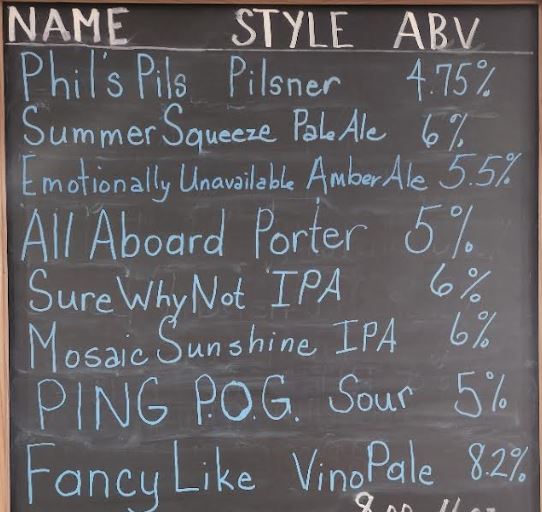 NAME STYLE ABV
Phil's Pils Pilsner 4.75%
Summer Squeeze Pale Ale 6%
Emotionally Unavailable Amber Ale 5.5%
All Aboard Porter 5%
Sure Why Not IPA 6%
Mosaic Sunshine IPA 6%
PING P.O.G. Sour 5%
Fancy Like Vino Pale 8.2%